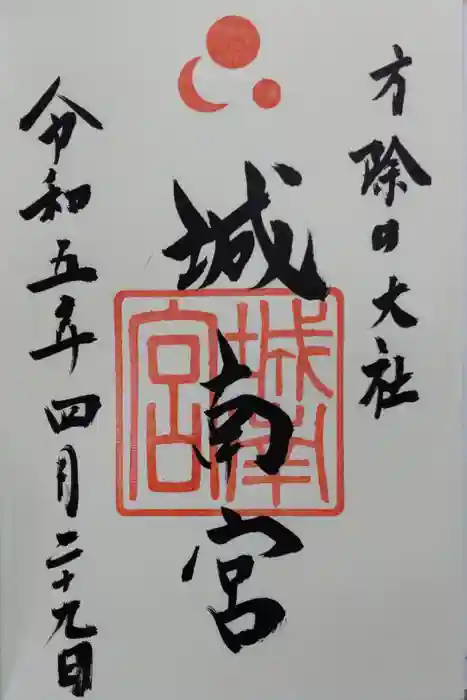 方除の大社
城南宮
城南宮
令和五年四月二十九日